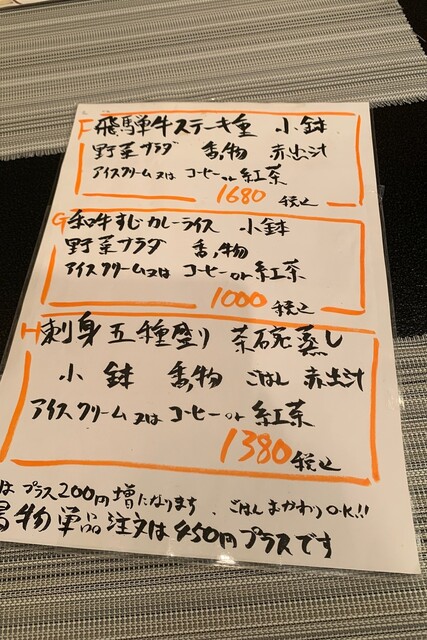 F 飛騨牛ステーキ重 小鉢
野菜サラダ 香物 赤出汁
アイスクリーム又は コーヒーor紅茶
1680 税込
G 和牛すじカレーライス 小鉢
野菜サラダ 香物
アイスクリーム又は コーヒーor紅茶
1000 税込
H 刺身五種盛り 茶碗蒸し
小鉢 香物 ごはん 赤出汁
アイスクリーム又は コーヒーor紅茶
1380 税込
は プラス200円増になります、ごはんおかわりOK!!
物単品注文は450円プラスです